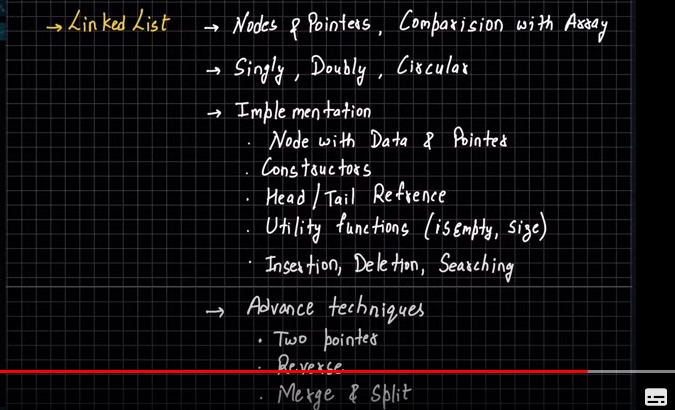 → Linked List → Nodes & Pointers, Comparision with Array
→ Singly, Doubly, Circular
→ Implementation
· Node with Data & Pointer
· Constructors
· Head/Tail Refrence
· Utility functions (isEmpty, size)
· Insertion, Deletion, Searching
→ Advance techniques
· Two pointer
· Reverse
· Merge & Split